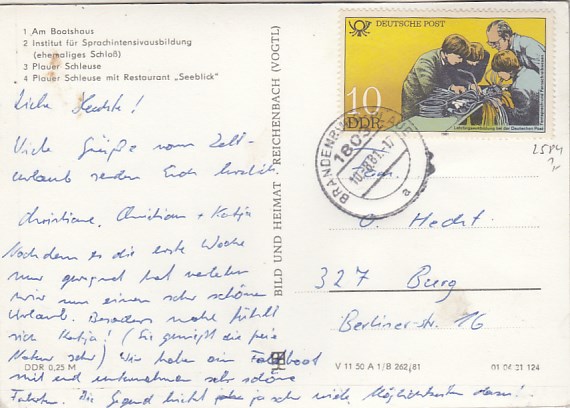 1 Am Bootshaus
2 Institut für Sprachintensivausbildung
(ehemaliges Schloß)
3 Plauer Schleuse
4 Plauer Schleuse mit Restaurant „Seeblick"
Liebe Hechte!
Viele Grüße vom Zelt-
urlaub senden Euch herzlich
Christiane, Christian + Katja
Nachdem es die erste Woche
nur geregnet hat verleben
wir nun einen sehr schönen
Urlaub. Besonders wohl fühlt
sich Katja! (Sie genießt die freie
Natur sehr) Wir haben ein Faltboot
mit und unternehmen sehr schöne
Fahrten. Die Gegend bietet ja sehr viele Möglichkeiten dazu!
DDR 0,25 M
BILD UND HEIMAT REICHENBACH (VOGTL)
DEUTSCHE POST
10
DDR
Lehrlingsausbildung bei der Deutschen Post
BRANDENBURG
1802
10.8.81
a
2584
Fam.
O. Hecht
327 Burg
Berliner-str. 16
V 11 50 A 1/B 262/81
01 04 21 124